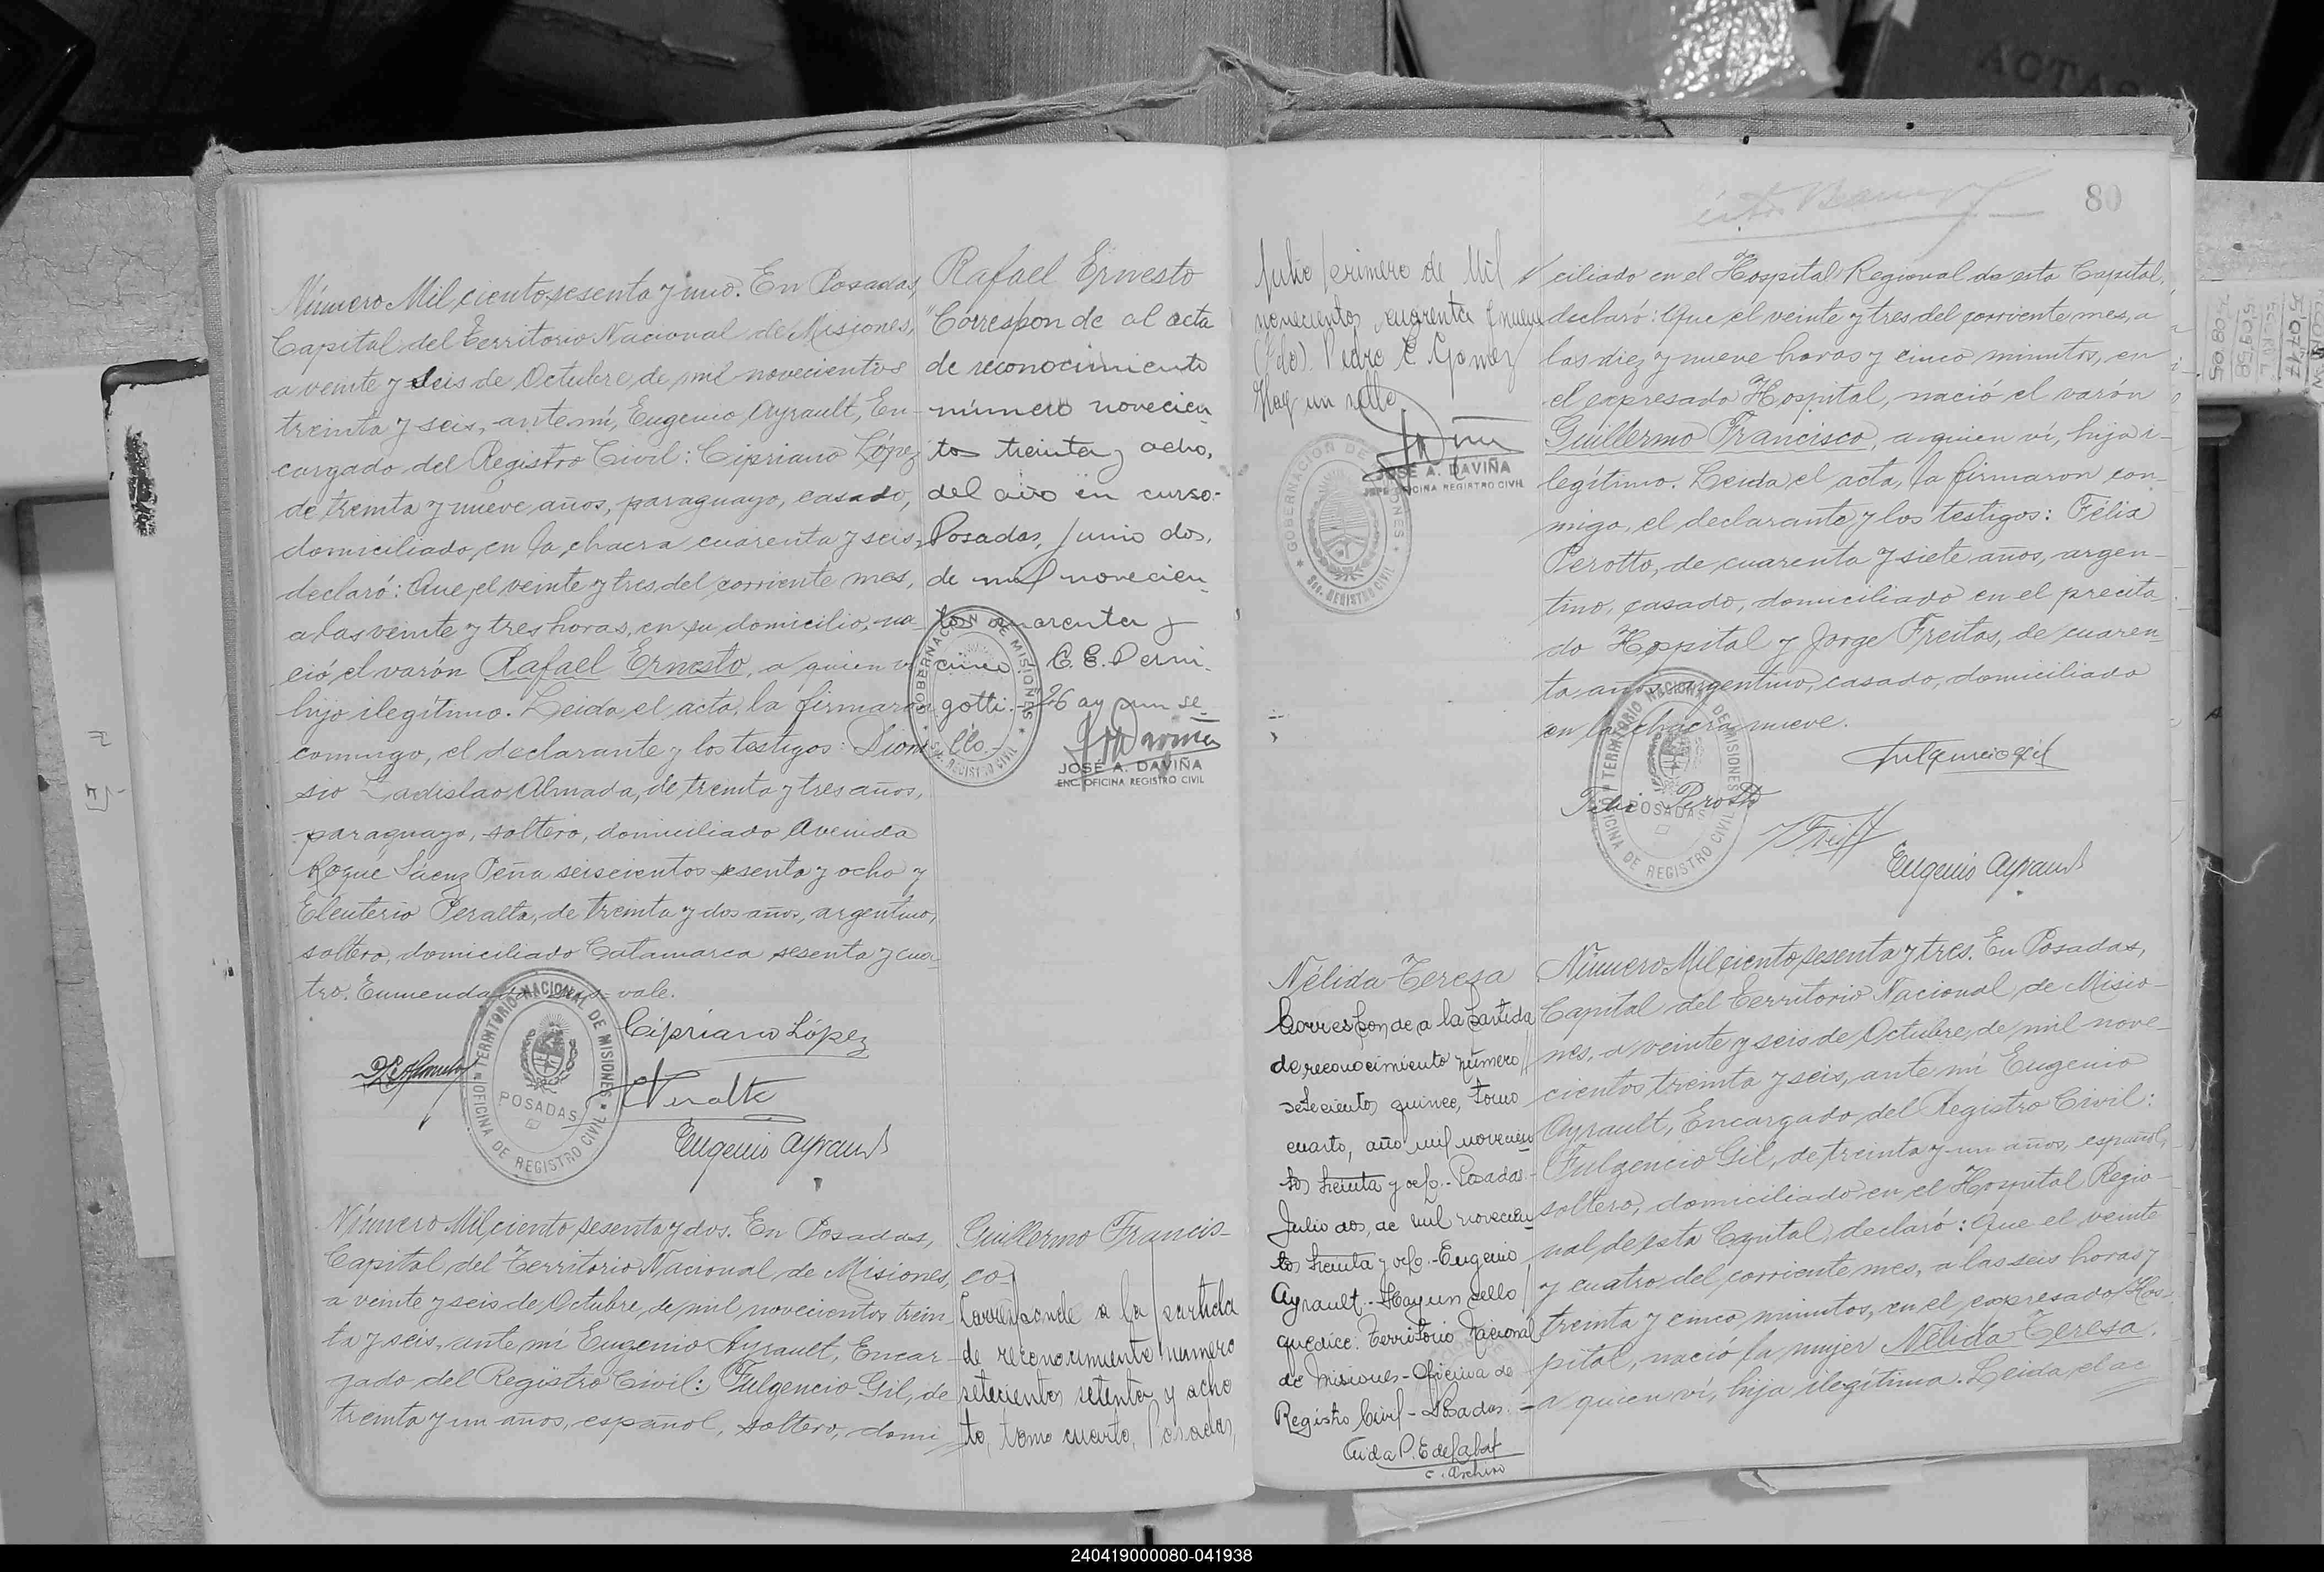 Número Mil ciento sesenta y uno. En Posadas,
Capital del Territorio Nacional de Misiones,
a veinte y seis de Octubre de mil novecientos
treinta y seis, ante mí, Eugenio Ayrault, En-
cargado del Registro Civil: Cipriano López
de treinta y nueve años, paraguayo, casado,
domiciliado en la chacra cuarenta y seis,
declaró: Que el veinte y tres del corriente mes,
a las veinte y tres horas, en su domicilio, na-
ció el varón Rafael Ernesto, a quien ví
hijo ilegítimo. Leida el acta, la firmaron
conmigo, el declarante y los testigos: Dioni
sio Ladislao Almada, de treinta y tres años,
paraguayo, soltero, domiciliado Avenida
Roque Sáenz Peña seiscientos sesenta y ocho y
Eleuterio Peralta, de treinta y dos años, argentino,
soltero, domiciliado Catamarca sesenta y cua-
tro. Enmendado = seis = vale.
Cipriano López
Peralta
Eugenio Ayrault
TERRITORIO NACIONAL DE MISIONES
POSADAS
OFICINA DE REGISTRO CIVIL
Rafael Ernesto
"Corresponde al acta
de reconocimiento
número novecien
tos treinta y ocho,
del año en curso.-
Posadas, Junio dos,
de mil novecien
tos cuarenta y
cinco. C. E. Perni-
gotti. - Hay un se
llo.-
GOBERNACION DE MISIONES
Sec. REGISTRO CIVIL
JOSÉ A. DAVIÑA
ENC. OFICINA REGISTRO CIVIL
Número Mil ciento sesenta y dos. En Posadas,
Capital del Territorio Nacional de Misiones,
a veinte y seis de Octubre de mil novecientos trein
ta y seis, ante mí Eugenio Ayrault, Encar-
gado del Registro Civil: Fulgencio Gil, de
treinta y un años, español, soltero, domi
Guillermo Francis-
co.
Corresponde a la partida
de reconocimiento numero
setecientos setenta y ocho
to, tomo cuarto, Posadas,
80
Julio primero de Mil
novecientos cuarenta y nueve
(Fdo). Pedro E. Gomez
Hay un sello
JOSÉ A. DAVIÑA
JEFE OFICINA REGISTRO CIVIL
GOBERNACION DE MISIONES
Sec. REGISTRO CIVIL
ciliado en el Hospital Regional de esta Capital,
declaró: Que el veinte y tres del corriente mes, a
las diez y nueve horas y cinco minutos, en
el expresado Hospital, nació el varón
Guillermo Francisco, a quien ví, hijo i-
legítimo. Leida el acta, la firmaron con-
migo, el declarante y los testigos: Félix
Perotto, de cuarenta y siete años, argen-
tino, casado, domiciliado en el precita
do Hospital y Jorge Freitas, de cuaren-
ta años, argentino, casado, domiciliado
en la chacra nueve.
Fulgencio Gil
Felix Perotto
Eugenio Ayrault
TERRITORIO NACIONAL DE MISIONES
POSADAS
OFICINA DE REGISTRO CIVIL
Nélida Teresa
Corresponde a la partida
de reconocimiento número
setecientos quince, tomo
cuarto, año mil novecien
tos treinta y ocho.- Posadas.-
Julio dos, de mil novecien
tos treinta y ocho.- Eugenio
Ayrault.- Hay un sello
que dice: Territorio Nacional
de Misiones - Oficina de
Registro Civil - Posadas. -
c. Archivo
Número Mil ciento sesenta y tres. En Posadas,
Capital del Territorio Nacional de Misio-
nes, a veinte y seis de Octubre de mil nove-
cientos treinta y seis, ante mí Eugenio
Ayrault, Encargado del Registro Civil:
Fulgencio Gil, de treinta y un años, español,
soltero, domiciliado en el Hospital Regio-
nal de esta Capital, declaró: Que el veinte
y cuatro del corriente mes, a las seis horas y
treinta y cinco minutos, en el expresado Hos-
pital, nació la mujer Nélida Teresa,
a quien ví, hija ilegítima. Leida el ac
240419000080-041938